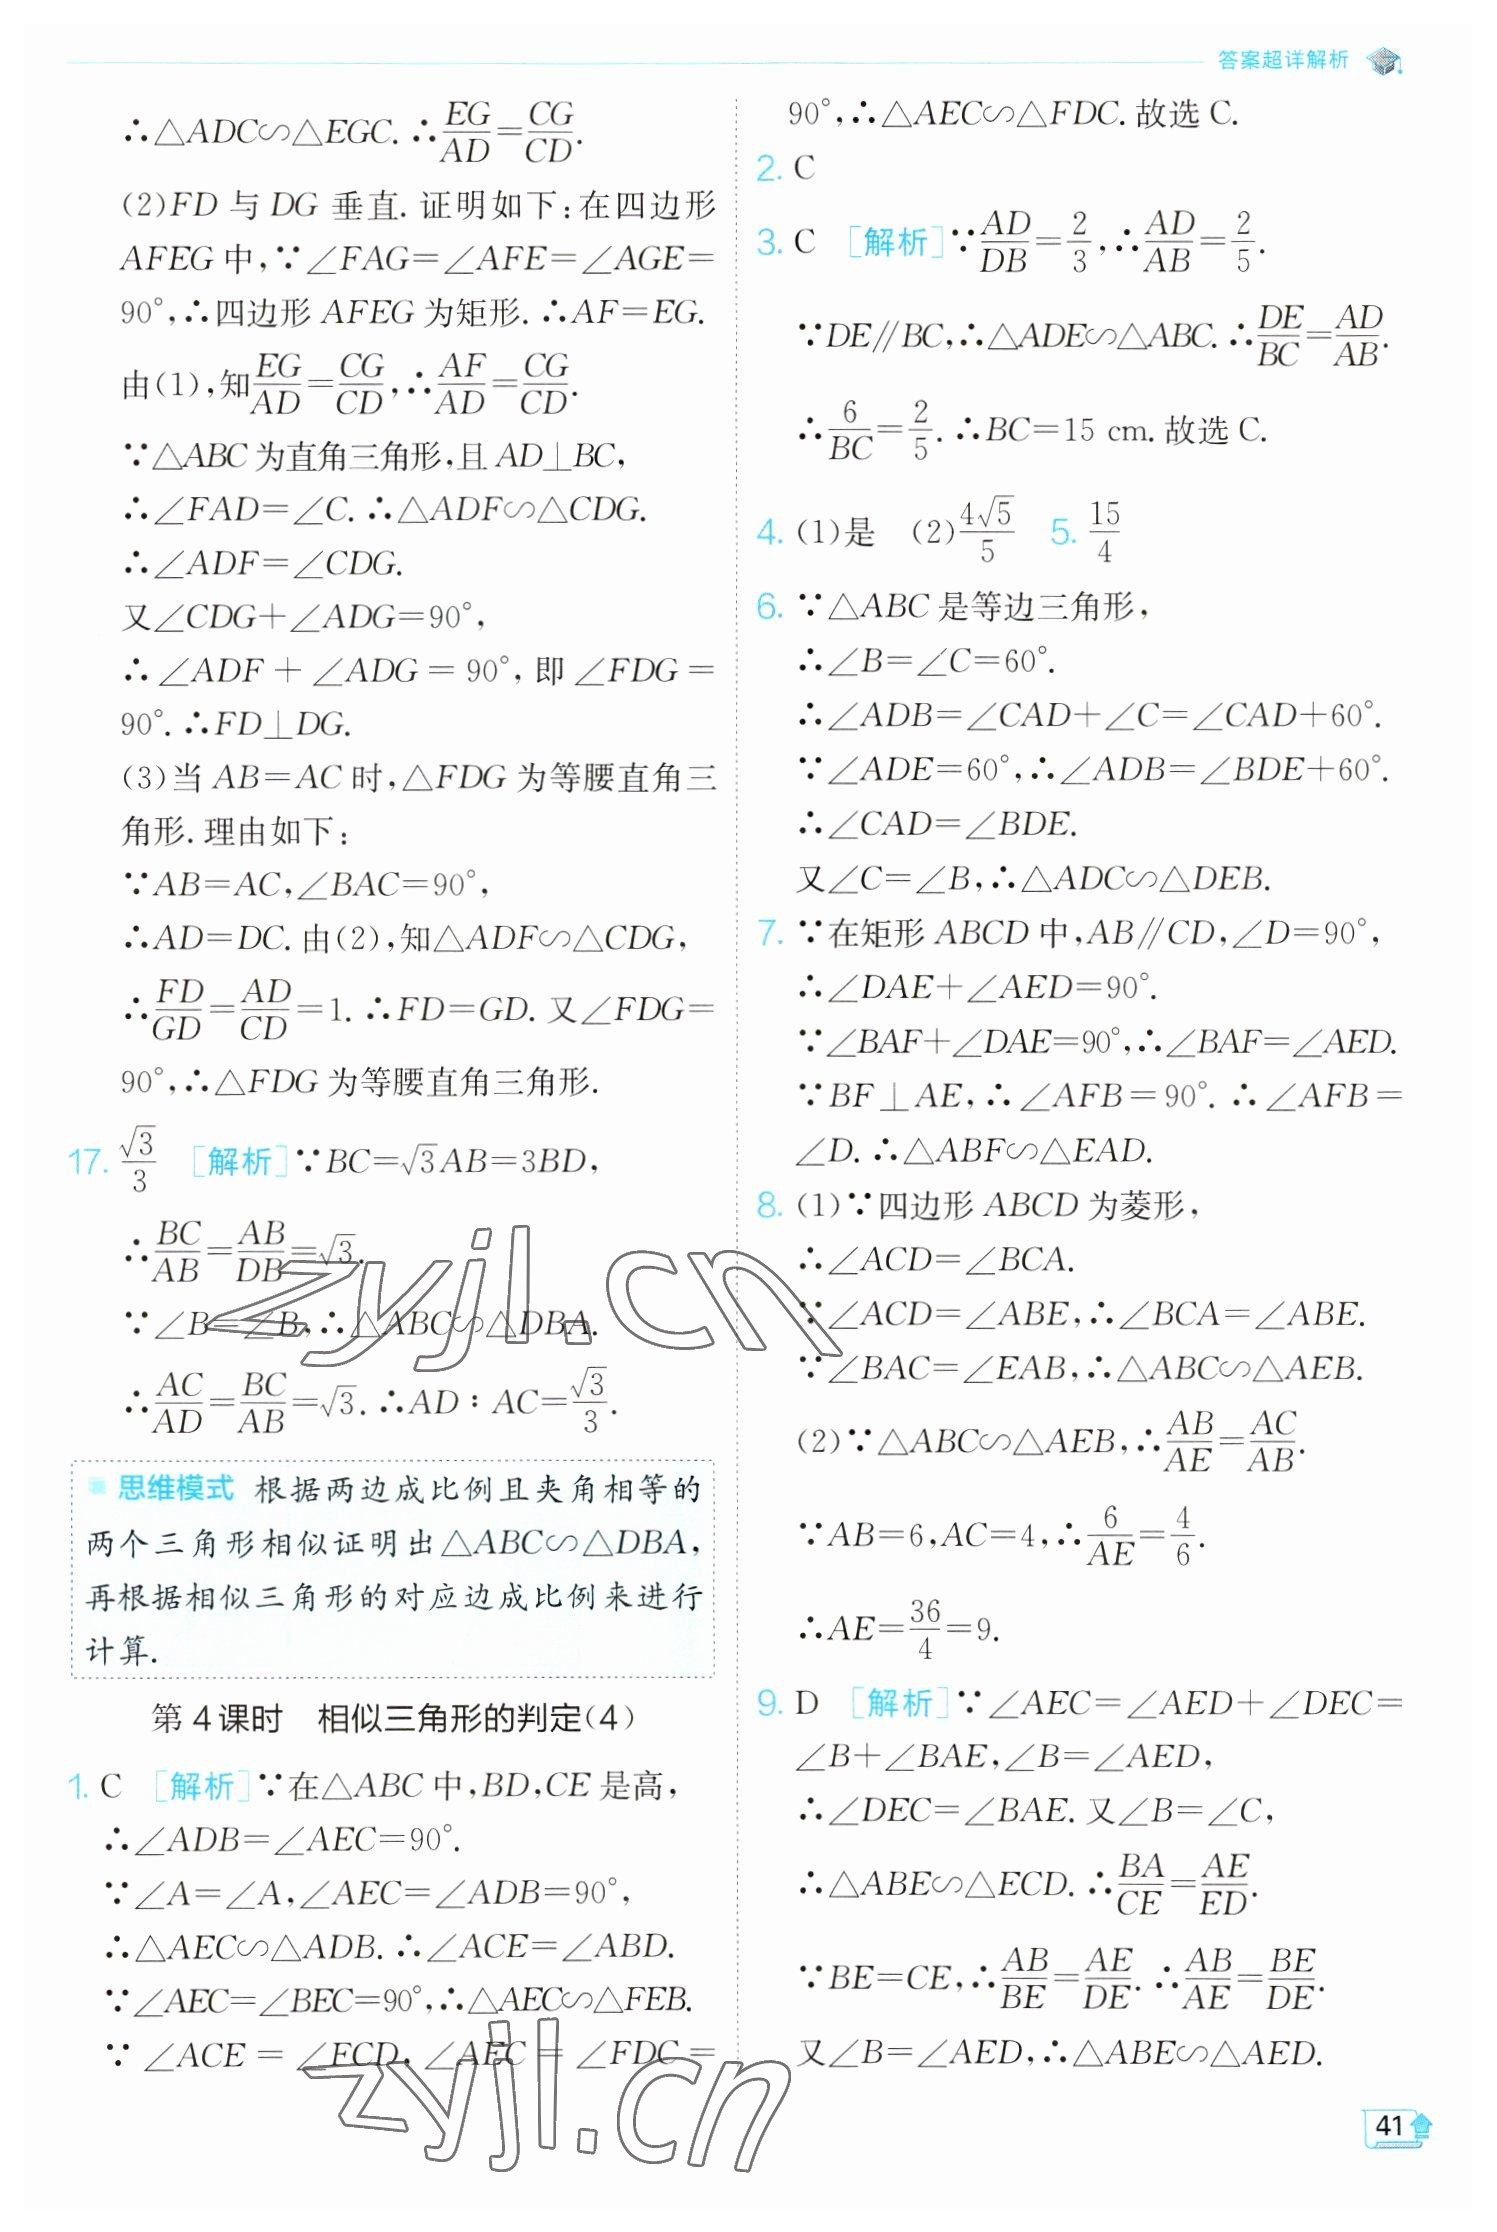 答案超详解析
∴△ADC∽△EGC. ∴EG/AD=CG/CD.
(2)FD 与 DG 垂直. 证明如下:在四边形
AFEG 中,∵∠FAG=∠AFE=∠AGE=
90°,∴四边形 AFEG 为矩形. ∴AF=EG.
由(1),知EG/AD=CG/CD,∴AF/AD=CG/CD.
∵△ABC 为直角三角形,且 AD⊥BC,
∴∠FAD=∠C. ∴△ADF∽△CDG.
∴∠ADF=∠CDG.
又∠CDG+∠ADG=90°,
∴∠ADF+∠ADG=90°,即∠FDG=
90°. ∴FD⊥DG.
(3)当 AB=AC 时,△FDG 为等腰直角三
角形. 理由如下:
∵AB=AC,∠BAC=90°,
∴AD=DC. 由(2),知△ADF∽△CDG,
∴FD/GD=AD/CD=1. ∴FD=GD. 又∠FDG=
90°,∴△FDG 为等腰直角三角形.
17. √3/3 [解析]∵BC=√3AB=3BD,
∴BC/AB=AB/DB=√3.
∵∠B=∠B,∴△ABC∽△DBA.
∴AC/AD=BC/AB=√3. ∴AD∶AC=√3/3.
思维模式 根据两边成比例且夹角相等的
两个三角形相似证明出△ABC∽△DBA,
再根据相似三角形的对应边成比例来进行
计算.
第 4 课时 相似三角形的判定(4)
1. C [解析]∵在△ABC 中,BD,CE 是高,
∴∠ADB=∠AEC=90°.
∵∠A=∠A,∠AEC=∠ADB=90°,
∴△AEC∽△ADB. ∴∠ACE=∠ABD.
∵∠AEC=∠BEC=90°,∴△AEC∽△FEB.
∵∠ACE=∠FCD,∠AEC=∠FDC=
90°,∴△AEC∽△FDC. 故选 C.
2. C
3. C [解析]∵AD/DB=2/3,∴AD/AB=2/5.
∵DE∥BC,∴△ADE∽△ABC. ∴DE/BC=AD/AB.
∴6/BC=2/5. ∴BC=15 cm. 故选 C.
4. (1)是 (2)4√5/5 5. 15/4
6. ∵△ABC 是等边三角形,
∴∠B=∠C=60°.
∴∠ADB=∠CAD+∠C=∠CAD+60°.
∵∠ADE=60°,∴∠ADB=∠BDE+60°.
∴∠CAD=∠BDE.
又∠C=∠B,∴△ADC∽△DEB.
7. ∵在矩形 ABCD 中,AB∥CD,∠D=90°,
∴∠DAE+∠AED=90°.
∵∠BAF+∠DAE=90°,∴∠BAF=∠AED.
∵BF⊥AE,∴∠AFB=90°. ∴∠AFB=
∠D. ∴△ABF∽△EAD.
8. (1)∵四边形 ABCD 为菱形,
∴∠ACD=∠BCA.
∵∠ACD=∠ABE,∴∠BCA=∠ABE.
∵∠BAC=∠EAB,∴△ABC∽△AEB.
(2)∵△ABC∽△AEB,∴AB/AE=AC/AB.
∵AB=6,AC=4,∴6/AE=4/6.
∴AE=36/4=9.
9. D [解析]∵∠AEC=∠AED+∠DEC=
∠B+∠BAE,∠B=∠AED,
∴∠DEC=∠BAE. 又∠B=∠C,
∴△ABE∽△ECD. ∴BA/CE=AE/ED.
∵BE=CE,∴AB/BE=AE/DE. ∴AB/AE=BE/DE.
又∠B=∠AED,∴△ABE∽△AED.
zyjl.cn
zyjl.cn
41